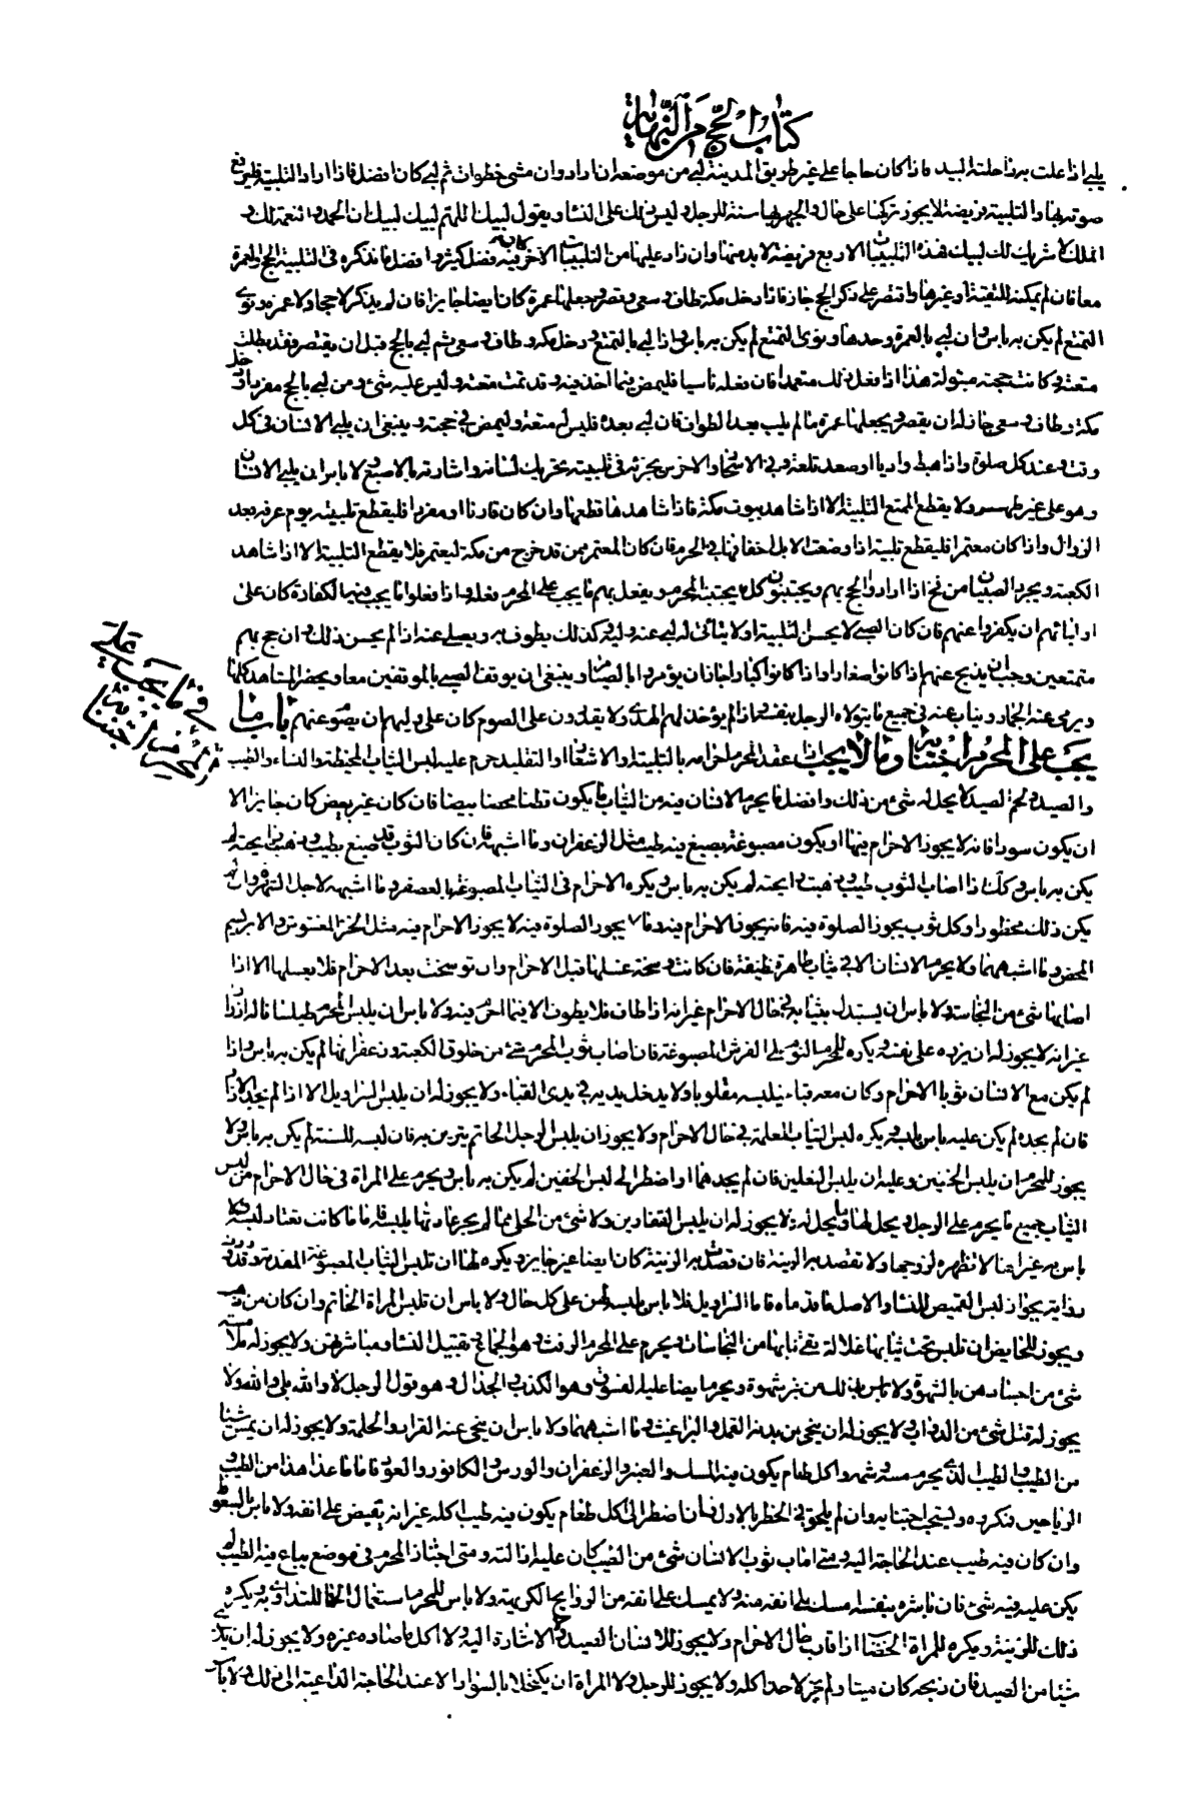 كتاب الحج من النهاية
يلبي اذا علت به راحلته البيداء فاذا كان حاجا على غير طريق المدينة لبى من موضعه ان اراد وان مشى خطوات ثم لبى كان افضل فاذا اراد التلبية فليرفع
صوته بها والتلبية فريضة لا يجوز تركها على حال والجهر بها سنة للرجال وليس ذلك على النساء ويقول لبيك اللهم لبيك لبيك ان الحمد والنعمة لك و
الملك لا شريك لك لبيك هذه التلبيات الاربع فريضة لا بد منها وان زاد عليها من التلبيات الاخر كان فيه فضل كثير وافضل ما تذكره في التلبية الحج والعمرة
معا فان لم يمكنه للتقية او غيرها واقتصر على ذكر الحج جاز فاذا دخل مكة طاف وسعى وقصر وجعلها عمرة كان ايضا جايزا فان لم يذكر لا حجا ولا عمرة ونوى
التمتع لم يكن به باس وان لبى بالعمرة وحدها ونوى التمتع لم يكن به باس واذا لبى بالتمتع ودخل مكة وطاف وسعى ثم لبى بالحج قبل ان يقصر فقد بطلت
متعته وكانت حجته مبتولة هذا اذا فعل ذلك متعمدا فان فعله ناسيا فليمض فيما اخذ فيه وقد تمت متعته وليس عليه شئ ومن لبى بالحج مفردا ودخل
مكة وطاف وسعى جاز له ان يقصر ويجعلها عمرة ما لم يلب بعد الطواف فان لبى بعده فليس له متعة وليمض في حجته وينبغي ان يلبي الانسان في كل
وقت وعند كل صلوة واذا هبط واديا او صعد تلعة وفي الاسحار والاخرس يجزئه في تلبيته تحريك لسانه واشارته بالاصبع ولا باس ان يلبي الانسان
وهو على غير طهر ولا يقطع المتمتع التلبية الا اذا شاهد بيوت مكة فاذا شاهدها قطعها وان كان قارنا او مفردا فليقطع تلبيته يوم عرفه بعد
الزوال واذا كان معتمرا فليقطع تلبيته اذا وضعت الابل اخفافها في الحرم فان كان المعتمر ممن قد خرج من مكة ليعتمر فلا يقطع التلبية الا اذا شاهد
الكعبة ويجرد الصبيان من فخ اذا ارادوا الحج بهم ويجتبون كل ما يجتنبه المحرم ويفعل بهم ما يجب على المحرم فعله واذا فعلوا ما يجب فيه الكفارة كان على
اوليائهم ان يكفروا عنهم فان كان الصبي لا يحسن التلبية اولا يتاتى له لبى عنه وليه كذلك يطوف به ويصلي عنه اذا لم يحسن ذلك وان حج بهم
متمتعين وجب ان يذبح عنهم اذا كانوا صغارا واذا كانوا كبارا جاز ان يؤمروا بالصيام وينبغي ان يوقف الصبي بالموقفين معا ويحضر المشاهد كلها
ويرمى عنه الجمار ويناب عنه في جميع ما يتولاه الرجل بنفسه واذا لم يؤخذ لهم الهدى ولا يقدرون على الصوم كان على وليهم ان يصوم عنهم باب ما
يجب على المحرم اجتنابه وما لا يجب اذا عقد المحرم احرامه بالتلبية والاشعار او التقليد حرم عليه لبس الثياب المخيطة والنساء والطيب
والصيد ولحم الصيد لا يحل له شئ من ذلك وافضل ما يحرم الانسان فيه من الثياب ما يكون قطنا محضا بيضا فان كان غير بيض كان جايزا الا
ان يكون سودا فانه لا يجوز الاحرام فيها او يكون مصبوغة بصبغ فيه طيب مثل الزعفران وما اشبهه فان كان الثوب قد صبغ بطيب وذهب رايحته لم
يكن به باس وكذلك اذا اصاب الثوب طيب وذهبت رايحته لم يكن به باس ويكره الاحرام في الثياب المصبوغة بالعصفر وما اشبهه لاجل الشهرة وان لم
يكن ذلك محظورا وكل ثوب يجوز الصلوة فيه فانه يجوز الاحرام فيه وما لا يجوز الصلوة فيه لا يجوز الاحرام فيه مثل الخز المغشوش والابريسم
المحض وما اشبههما ولا يحرم الانسان الا في ثياب طاهرة نظيفة فان كانت وسخة غسلها قبل الاحرام وان توسخت بعد الاحرام فلا يغسلها الا اذا
اصابها شئ من النجاسة ولا باس ان يستبدل بثيابه في حال الاحرام غير انه اذا طاف فلا يطوف الا فيما احرم فيه ولا باس ان يلبس المحرم طيلسانا له ازرار
غير انه لا يجوز له ان يزره على نفسه ويكره للمحرم النوم على الفرش المصبوغة فان اصاب ثوب المحرم شئ من خلوق الكعبة وزعفرانها لم يكن به باس واذا
لم يكن مع الانسان ثوبا الاحرام وكان معه قباء فيلبسه مقلوبا ولا يدخل يديه في يدى القباء ولا يجوز له ان يلبس السراويل الا اذا لم يجد الازار
فان لم يجده لم يكن عليه باس بلبسه ويكره لبس الثياب المعلمة في حال الاحرام ولا يجوز ان يلبس الرجل الخاتم يتزين به فان لبسه للسنة لم يكن به باس ولا
يجوز للمحرم ان يلبس الخفين وعليه ان يلبس النعلين فان لم يجدهما واضطر الى لبس الخفين لم يكن به باس ويحرم على المراة في حال الاحرام من لبس
الثياب جميع ما يحرم على الرجل ويحل لها ما يحل له ولا يجوز له ان يلبس القفازين ولا شئ من الحلي مما لم يجر عادتها بلبسه فاما ما كانت تعتاد لبسه فلا
باس به غير انها لا تظهره لزوجها ولا تقصد به الزينة فان قصدت به الزينة كان ايضا غير جايز ويكره لها ان تلبس الثياب المصبوغة المفدمة وقد وردت
رواية بجواز لبس القميص للنساء والاصل ما قدمناه فاما السراويل فلا باس بلبسه لهن على كل حال ولا باس ان تلبس المراة الخاتم وان كان من ذهب
ويجوز للحايض ان تلبس تحت ثيابها غلالة يقي ثيابها من النجاسات ويحرم على المحرم الرفث وهو الجماع وتقبيل النساء ومباشرتهن ولا يجوز له ملامسة
شئ من اجسادهن بالشهوة ولا باس بذلك من غير شهوة ويحرم ايضا عليه الفسوق وهو الكذب والجدال وهو قول الرجل لا والله وبلى والله ولا
يجوز له قتل شئ من الدواب ولا يجوز له ان ينحي عن بدنه القمل والبراغيث وما اشبههما ولا باس ان ينحي عنه القراد والحلمة ولا يجوز له ان يمس شيئا
من الطيب والطيب الذي يحرم مسه وشمه واكل طعام يكون فيه المسك والعنبر والزعفران والورس والكافور والعود فاما ما عدا هذا من الطيب و
الرياحين فمكروه ويستحب اجتنابه وان لم يلحق في الحظر بالاول فان اضطر الى اكل طعام يكون فيه طيب اكله غير انه يقبض على انفه ولا باس بالسعوط
وان كان فيه طيب عند الحاجة اليه ومتى اصاب ثوب الانسان شئ من الطيب كان عليه ازالته ومتى اجتاز المحرم في موضع يباع فيه الطيب لم
يكن عليه فيه شئ فان باشره بنفسه امسك على انفه منه ولا يمسك على انفه من الروايح الكريهة ولا باس للمحرم استعمال الحنا للتداوي به ويكره
ذلك للزينة ويكره للمراة الخضاب اذا قارب حال الاحرام ولا يجوز للانسان الصيد ولا الاشارة اليه ولا اكل ما صاده غيره ولا يجوز له ان يذبح
شيئا من الصيد فان ذبحه كان ميتا ولم يجز لاحد اكله ولا يجوز للرجل ولا المراة ان يكتحلا بالسواد الا عند الحاجة الداعية الى ذلك ولا باس
في ما يجب على
المحرم اجتنابه